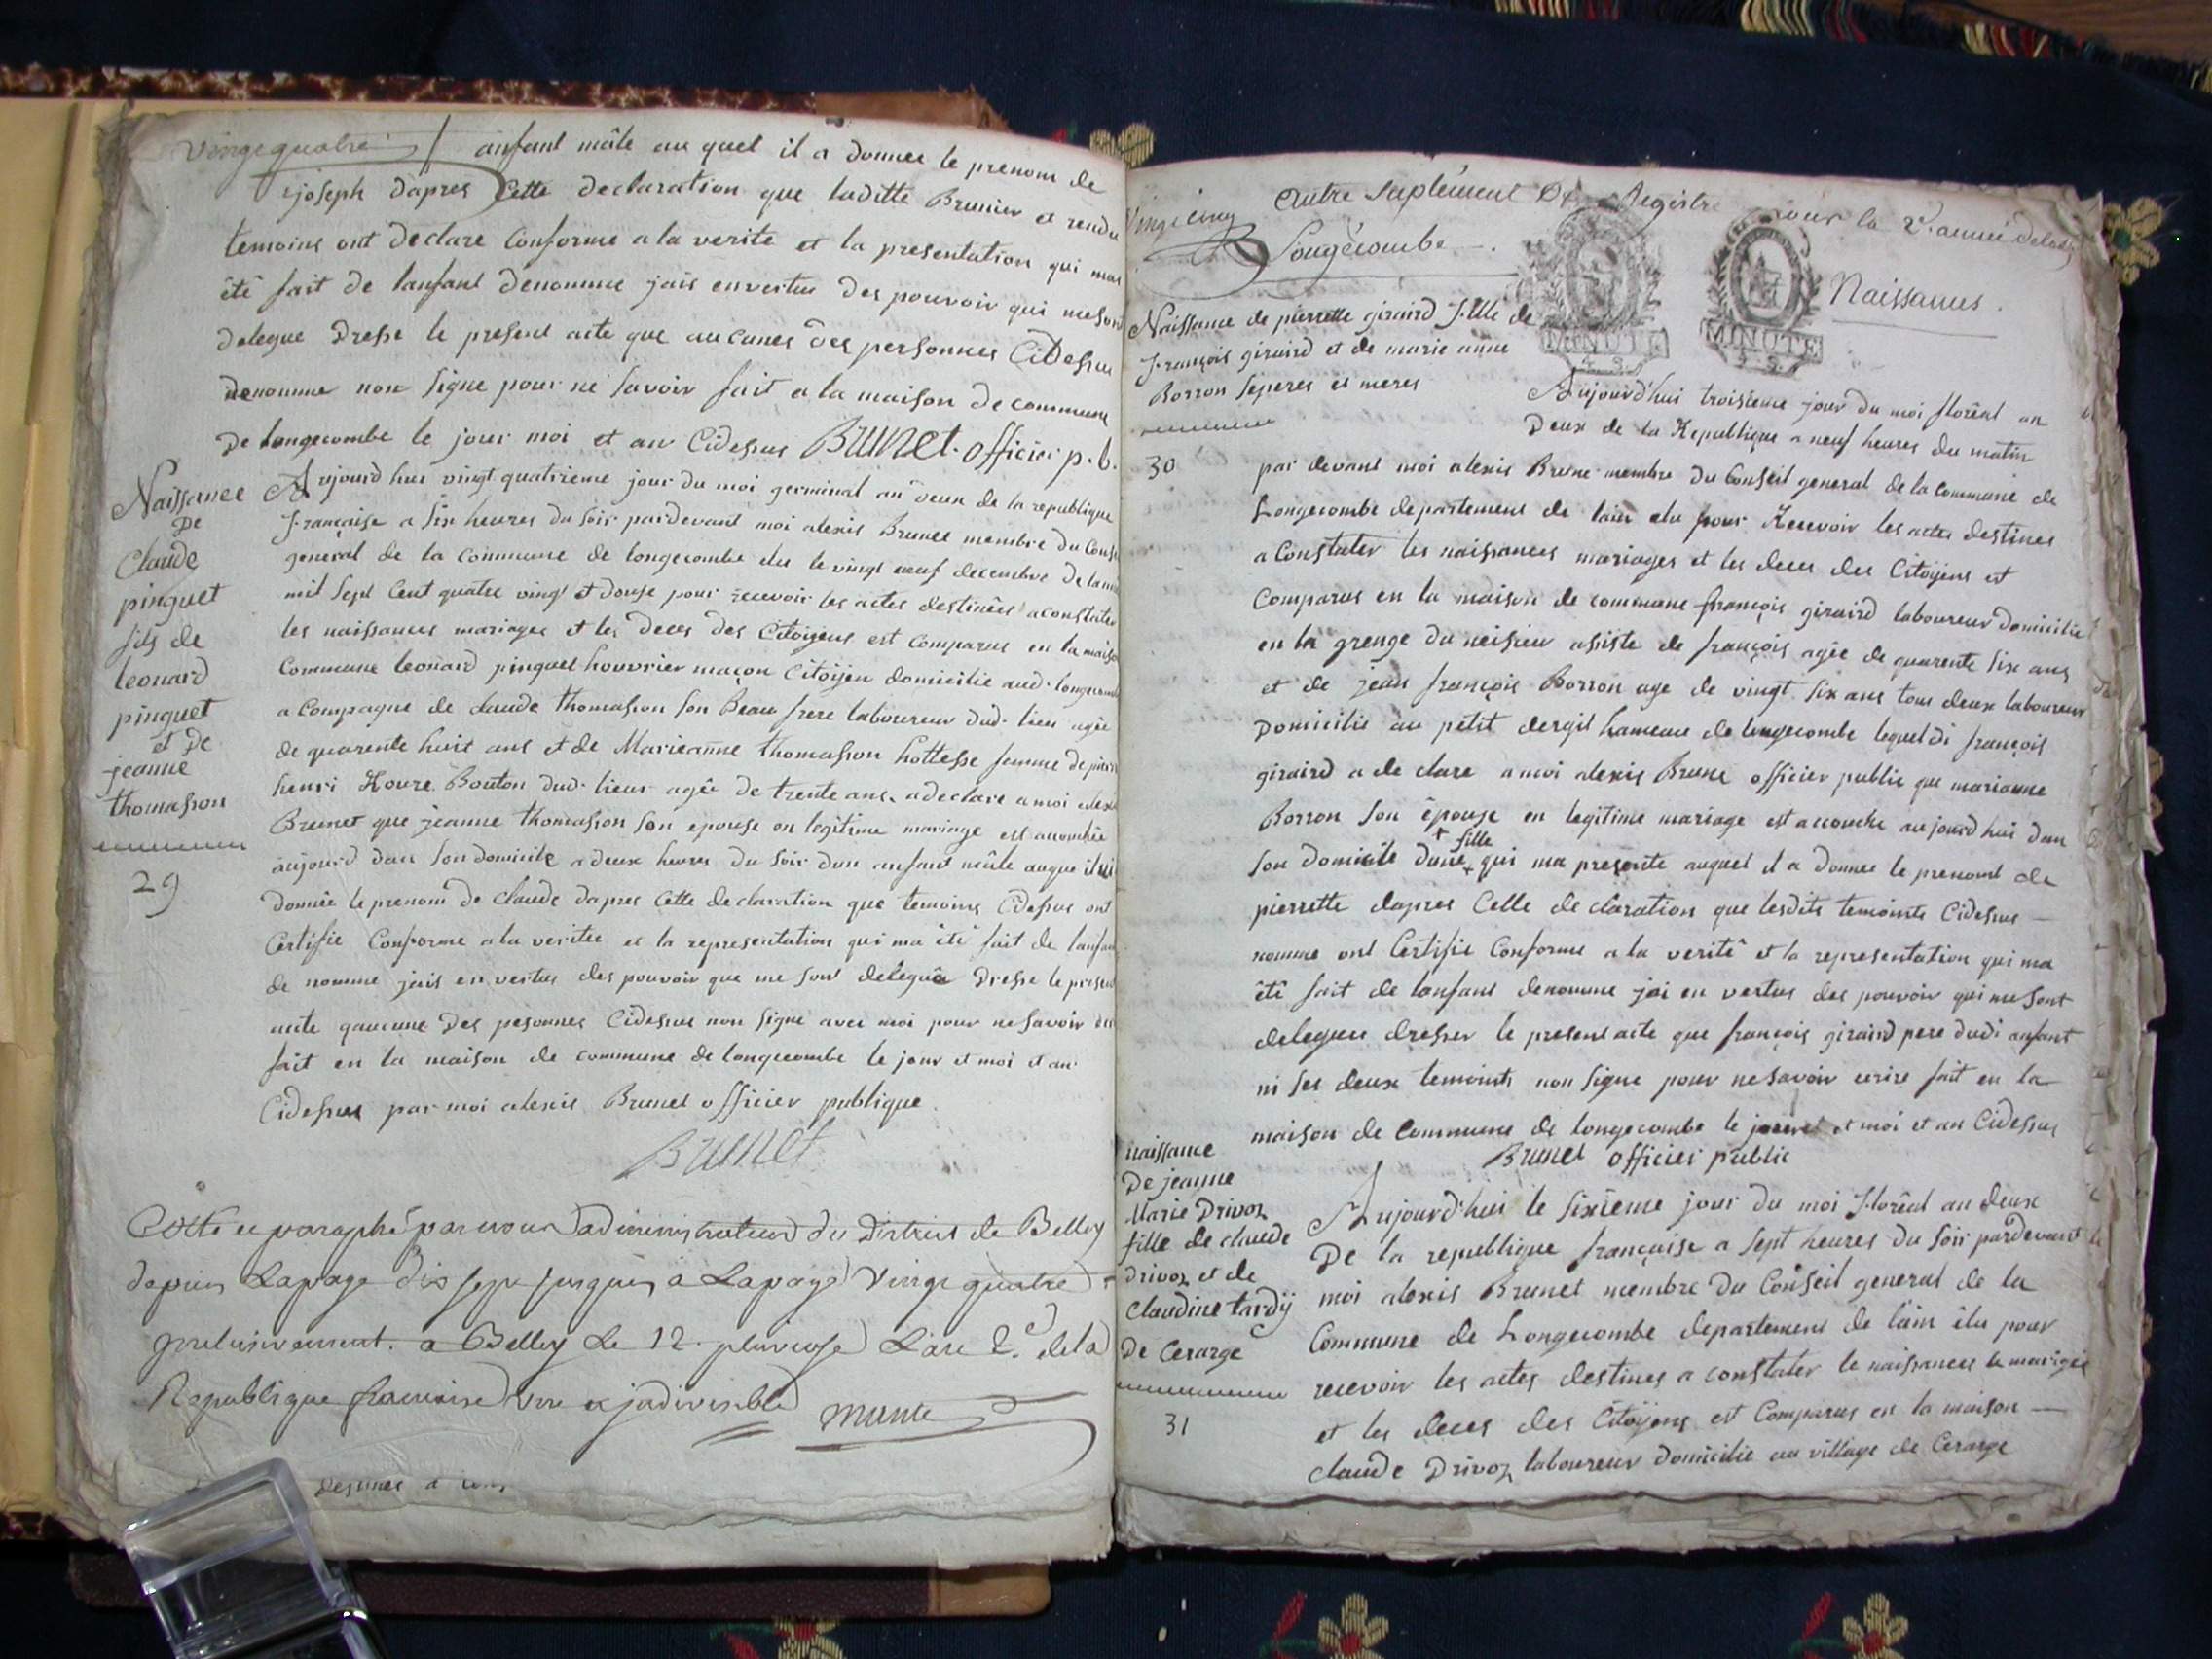 vingt quatre
anfant mâle au quel il a donnee le prenom de
joseph dapres Cette declaration que laditte Brunier et
temoins ont declare Conforme a la verite et la presentation qui mas
êtê fait de lanfant denomme jais envertus des pouvoir qui me sont
delegue Dresse le present acte que aucunes des personnes Cidessus
denomme non signe pour ne savoir fait a la maison de commune
de longecombe le jour moi et an Cidessus Brunet officier p.b.
Naissance
De
Claude
pinguet
fils de
leonard
pinguet
et de
jeanne
thomasson
29
Aujourd hui vingt quatrieme jour du moi germinal an deux de la republique
française a six heures du soir pardevant moi alexis Brunet membre du Conse
general de la commune de longecombe elu le vingt neuf decembre de
mil sept cent quatre vingt et douse pour recevoir les actes destinées a constater
les naissances mariages et les deces des Citoÿens est comparus en la maiso
commune leonard pinguet houvrier maçon Citoÿen domicilie aud. longecomb
a compagne de claude thomasson son Beau frere laboureur dud. lieu agée
de quarente huit ans et de Marieanne thomasson hottesse femme de
henri Bouton dud. lieux agée de trente ans a declare a moi alexi
Brunet que jeanne thomasson son epouse en legitime mariage est accouchée
aujourd dans son domicile a deux heures du soir dun anfant mâle auque il
donnée le prenom de claude dapres Cette declaration que temoins Cidessus ont
Certifie Conforme a la veritee et la representation qui ma êtê fait de lanfan
de nomme jais en vertus des pouvoir que me sont delegué Dresse le presen
acte qaucune des pesonnes Cidessus non signe avec moi pour ne savoir
fait en la maison de commune de longecombe le jour et moi et an
Cidessus par moi alexis Brunet officier publique
Brunet
Cotté et paraphé par nous administrateur du District de Belley
depuis La page dix sept jusques a La page vingt quatre
a Belley Le 12 pluviose L'an 2.e de la
Republique francaise une et indivisible
destines a cons
Vingt cinq
Autre Suplement Du Registre pour la 2.e année de la
Longecombe
Naissances
MINUTE
MINUTE
Naissance de pierrette giraird fille de
françois giraird et de marie anne
Borron seperes et meres
30
Aujourd'hui troisieme jour du moi floréal an
Deux de la Republique a neuf heures du matin
par devant moi alexis Brune membre du Conseil general de la commune de
Longecombe departement de lain elu pour Recevoir les actes destines
a Constater les naissances mariages et les deces des Citoÿens et
Comparus en la maison de commune françois giraird laboureur domicilie
en la grenge du assiste de françois agée de quarente six ans
et de jean françois Borron age de vingt six ans tous deux laboureur
Domicilie au petit hameaux de longecombe lequeldi françois
giraird a de clare a moi alexis Brune officier public que marianne
Borron son êpouse en legitime mariage est accouche aujourd hui dans
son domicile dune + fille qui ma presente auquel il a donnee le prenom de
pierrette dapres Celle de claration que lesdits temoints Cidessus —
nomme ont Certifie Conforme a la veritê et la representation qui ma
êtê fait de lanfant denomme jai en vertus des pouvoir qui me sont
deleguee dresser le present acte que françois giraird pere dudi anfant
ni ses deux temoints non signe pour ne savoir ecrire fait en la
maison de Commune de longecombe le jour et moi et an Cidessus
Brunet officier public
naissance
De jeanne
Marie Drivoz
fille de claude
Drivoz et de
Claudine tardÿ
De Cerarge
31
Aujourd'hui le sixieme jour du moi floréal an deux
De la republique française a sept heures du soir pardevant
moi alexis Brunet membre du Conseil general de la
Commune de Longecombe departement de lain êlu pour
recevoir les actes destines a constater le naissances le mariges
et les deces des Citoÿens est Comparus en la maison —
claude Drivoz laboureur domicilie au village de Cerarge